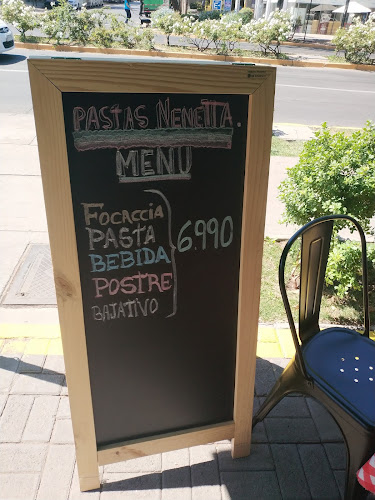 PASTAS NENETTA.
MENU
FOCACCIA
PASTA
BEBIDA
POSTRE
BAJATIVO
6.990